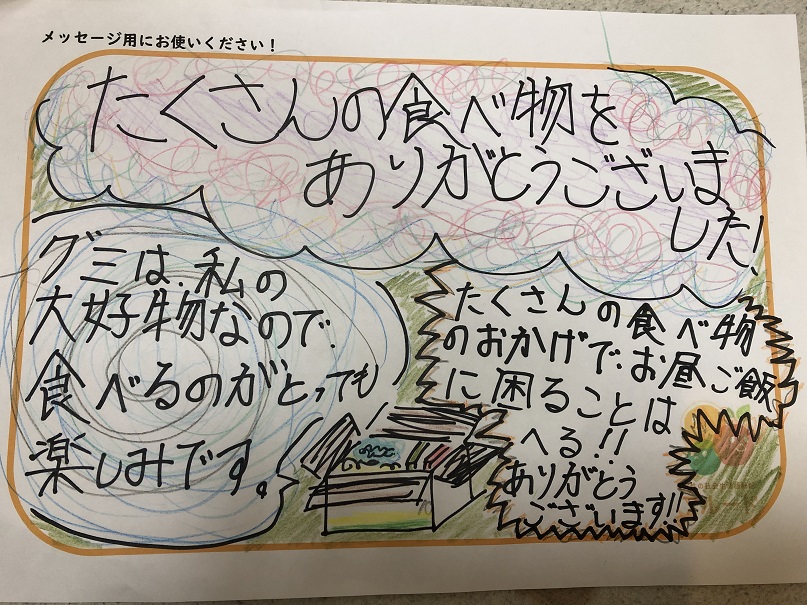 メッセージ用にお使いください！
たくさんの食べ物を
ありがとうございま
した！
グミは、私の
大好物なので、
食べるのがとっても
楽しみです。
たくさんの食べ物
のおかげで、お昼ご飯
に困ることは
へる！！
ありがとう
ございます!!